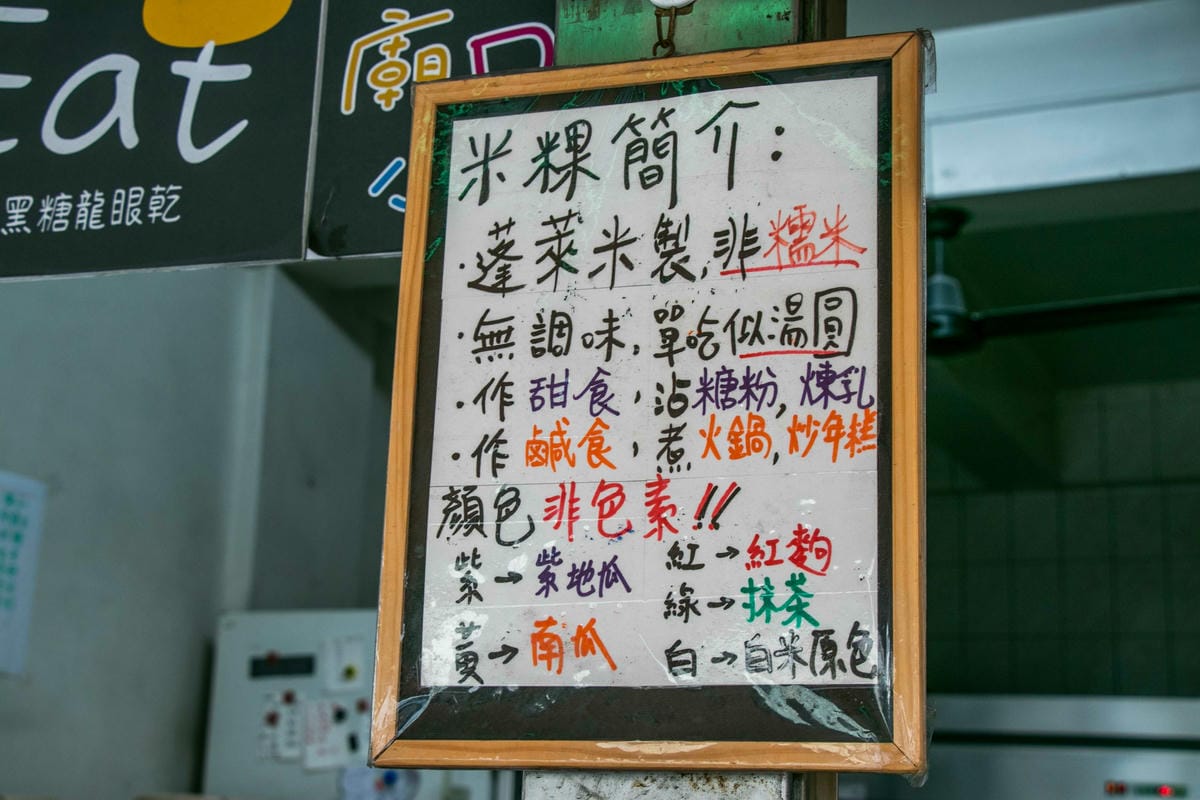 Eat
黑糖龍眼乾
廟口
米粿簡介:
·蓬萊米製,非糯米
·無調味,單吃似湯圓
·作甜食,沾糖粉,煉乳
·作鹹食,煮火鍋,炒年糕
顏色非色素!!
紫→紫地瓜 紅→紅麴
綠→抹茶
黃→南瓜 白→白米原色